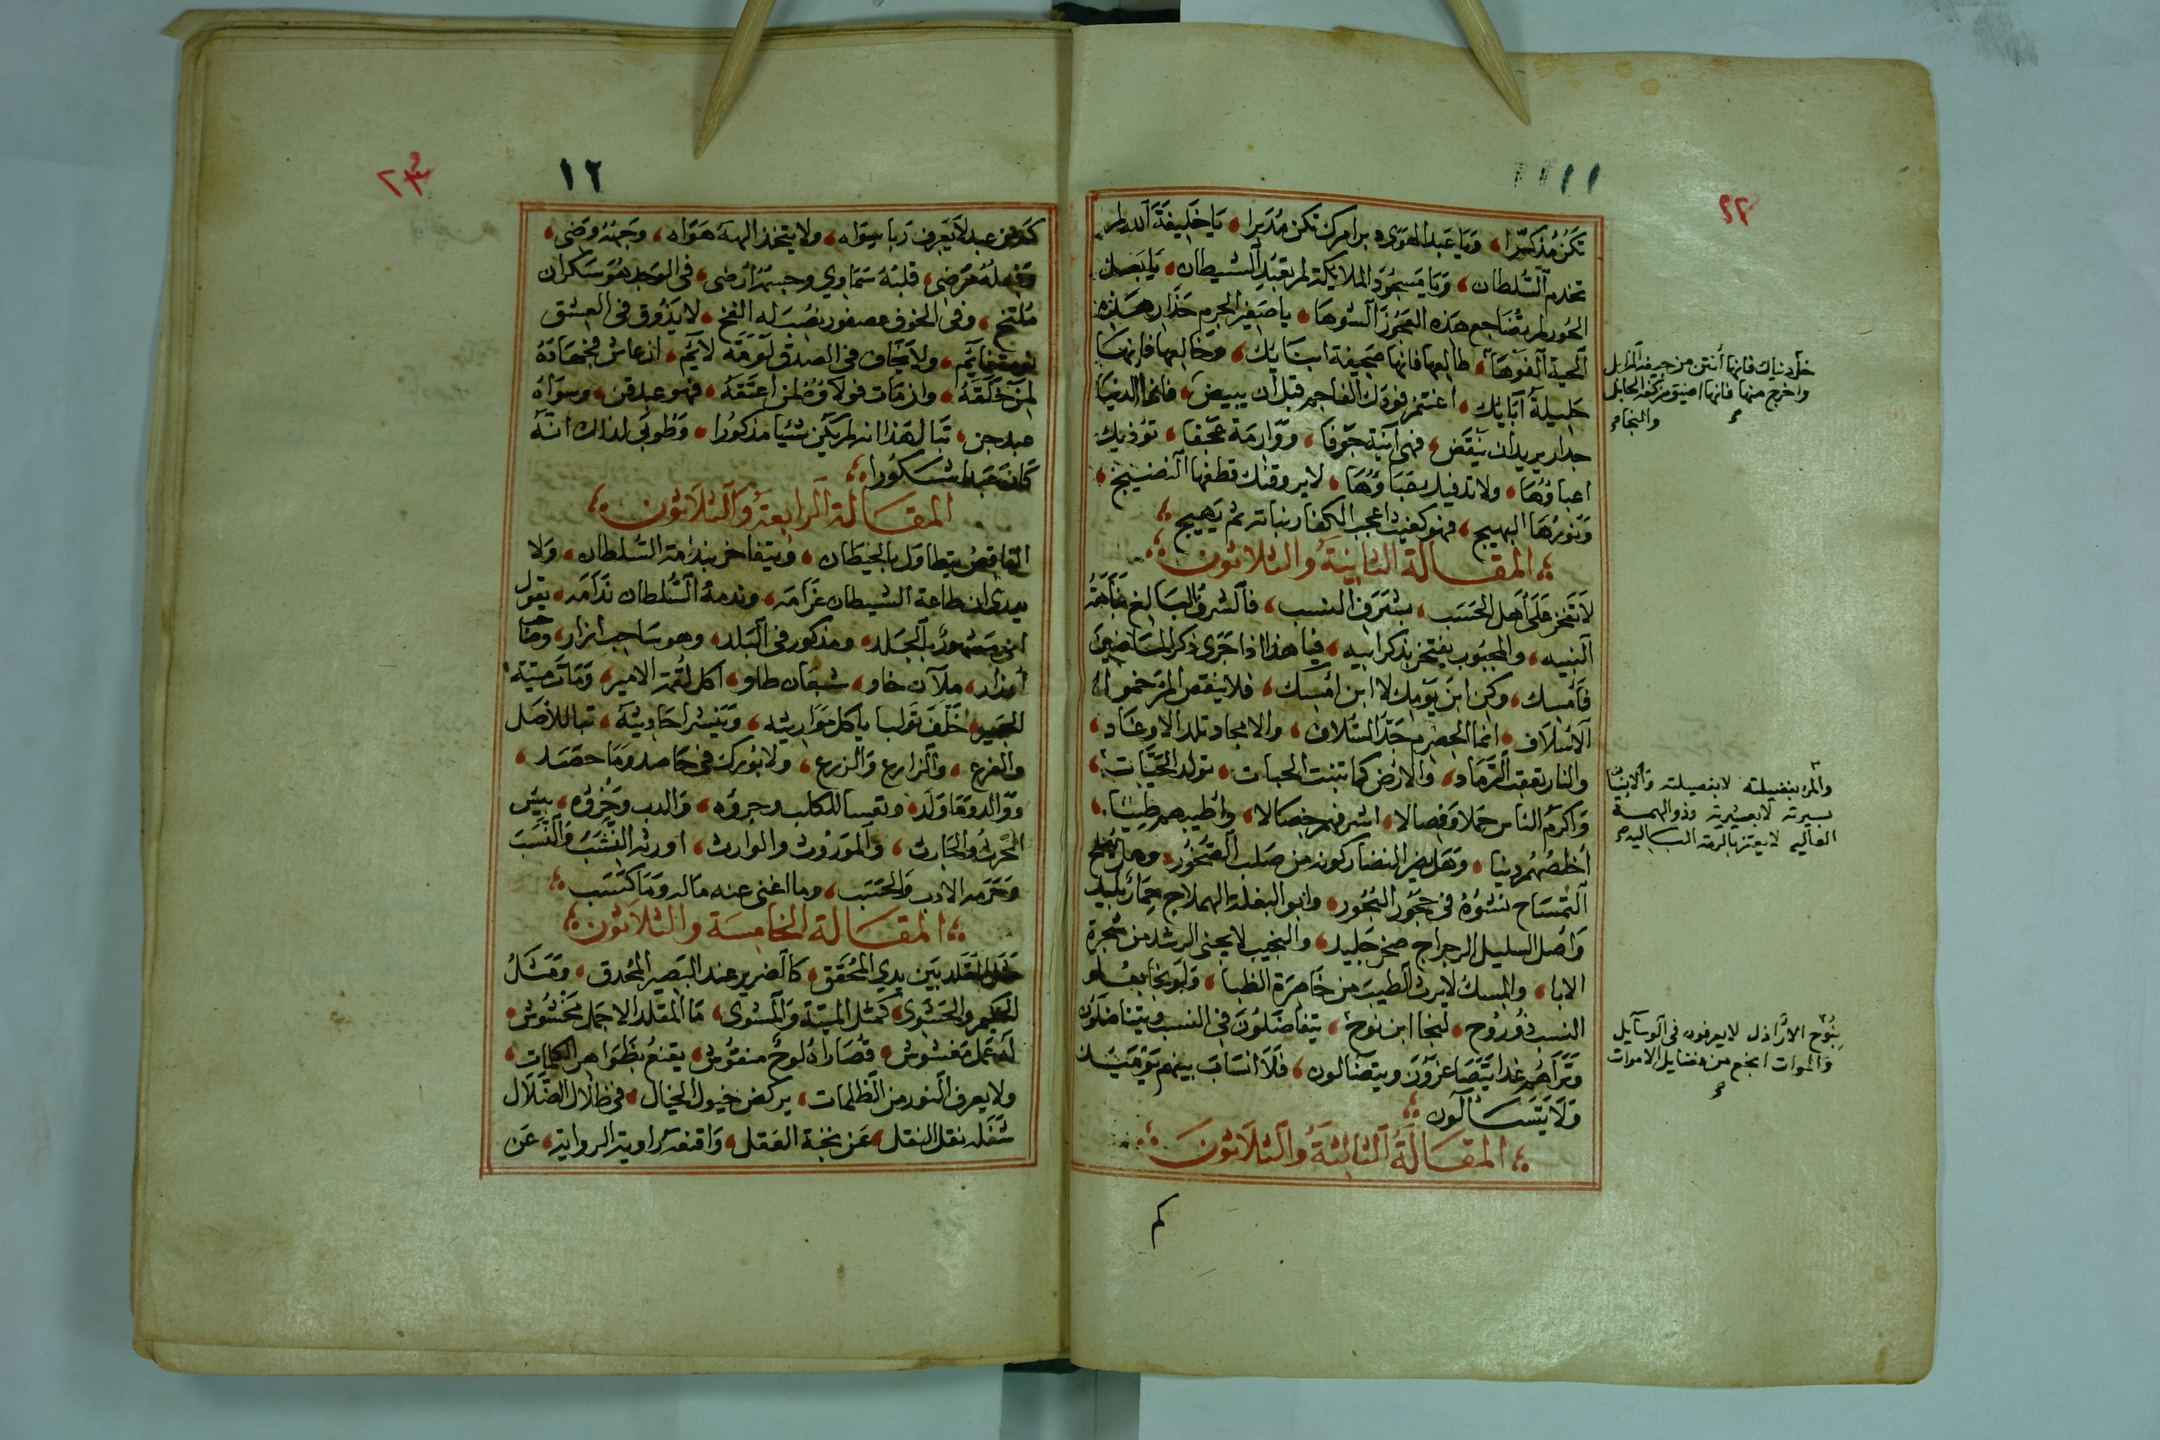 ١١
٢٢
تكن مذكرا، ويا عبد الهوى دبر امرك تكن مدبرا، يا خليفة الله لم
تخدم السلطان، ويا مسجود الملائكة لم تعبد الشيطان، يا بعل
الحور لم تضاجع هذه العجوز الشوها، يا صغير الجرم حذار هذه
الحية الفوها، طالعها فانها صحيفة ابنايك، وخالعها فانها
حليلة آبايك، اغتنم فودك الفاحم قبل ان يبيض، فانما الدنيا
جدار يريد ان ينقض، فهى آنية جوفا، ودوارمة عجفا، تؤذيك
اعباؤها، ولا تدفيك عباؤها، لا يروقنك قطفها النضيج،
ونورها البهيج، فهو كغيث اعجب الكفار نباته ثم يهيج
المقالة الثانية والثلاثون
لا تفخر على اهل الحسب، بشرف النسب، فالشرف البالغ نباهة
النبيه، والمجبوب يفتخر بذكر ابيه، فيا هذا اذا جرى ذكر الماضين
فامسك، وكن ابن يومك لا ابن امسك، فلا ينقص المرء خمول
الاسلاف، انما الحضرم جد السلاف، والامجاد تلد الاوغاد،
والنار تعقب الرماد، والارض كما تنبت الحبات، تولد الحيات،
واكرم الناس حملا وفصالا، اشرفهم خصالا، واطيبهم طينا،
اخلصهم دينا، وهل يضر النضار كونه من صلب الصخور، وهل
التمساح نشوه فى حجور البحور، وابو البغلة الهملاج حمار بليد
واصل السليل الرجراج صخر جليد، والنجيب لا يجنى الرشد من شجرة
الابا، والمسك لا يرث الطيب من خاصرة الظبا، ولو نجا بعلو
النسب ذو روح، لنجا ابن نوح، يتفاضلون فى النسب ويتناضلون
وتراهم غدا يتصاغرون ويتضالون، فلا انساب بينهم يوميذ
ولا يتسالون
المقالة الثالثة والثلاثون
كم
خل دنياك فانها أنتن من جيفة المزابل
واخرج منها فانها اضيق من كفة الحابل
والنجاء
والمرء بفضيلته لا بفصيلته والانسان
بسيرته لا بعشيرته وذو الهمة
العاليه لا يعتز بالرمة الباليه
بنوح الاراذل لا يعرفون فى الوسايل
والموات انجع من فضايل الاموات
١٢
٢٣
كم من عبد لا يعرف ربا سواه، ولا يتخذ الهه هواه، وجهه وضى،
وفعله مرضى، قلبه سماوي وجسمه ارضى، فى الوجد هو سكران
ملتخ، وفى الخوف عصفور نصب له الفخ، لا يذوق فى العشق
نومة نايم، ولا يخاف فى الصدق لومة لايم، ان عاش فجهاده
لمن خلقه، وان مات فولاؤه لمن اعتقه، فهو عبد قن، وسواه
عبد جن، تبا لهذا انه لم يكن شيئا مذكورا، وطوبى لذاك انه
كان عبدا شكورا
المقالة الرابعة والثلاثون
الناقص يتطاول بالحيطان، ويتفاخر بندامة السلطان، ولا
يدرى ان طاعة الشيطان غرامه، وندمة السلطان ندامه، يقول
انى مشهور بالجلد، ومذكور فى البلد، وهو ساحب ازار، وصاحب
اوزار، ملآن خاو، شبعان طاو، اكل لقمة الامير، ومات ميتة
الحمير، خلف تولبا ياكل مواريثه، وينشر احاديثه، تبا للاصل
والفرع، والزارع والزرع، ولا بورك فى حاصد وما حصد،
ووالد وما ولد، وتعسا للكلب وجروه، والدب وجروه، بيس
الحرث والحارث، والموروث والوارث، اورثه النشب والنسب
وحرمه الادب والحسب، وما اغنى عنه ماله وما كسب
المقالة الخامسة والثلاثون
مثل المقلد بين يدي المحقق، كالضرير عند البصير المحدق، ومثل
الحكيم والحشوى، كمثل الميتة والمشوى، ما المقلد الا جمل مخشوش
له عمل مغشوش، قصاراه لوح منقوش، يقنع بظواهر الكلمات،
ولا يعرف النور من الظلمات، يركض خيول الخيال، فى ظلال الضلال
شغله نقل النقل، عن نخبة العقل، واقنعه راوية الرواية، عن